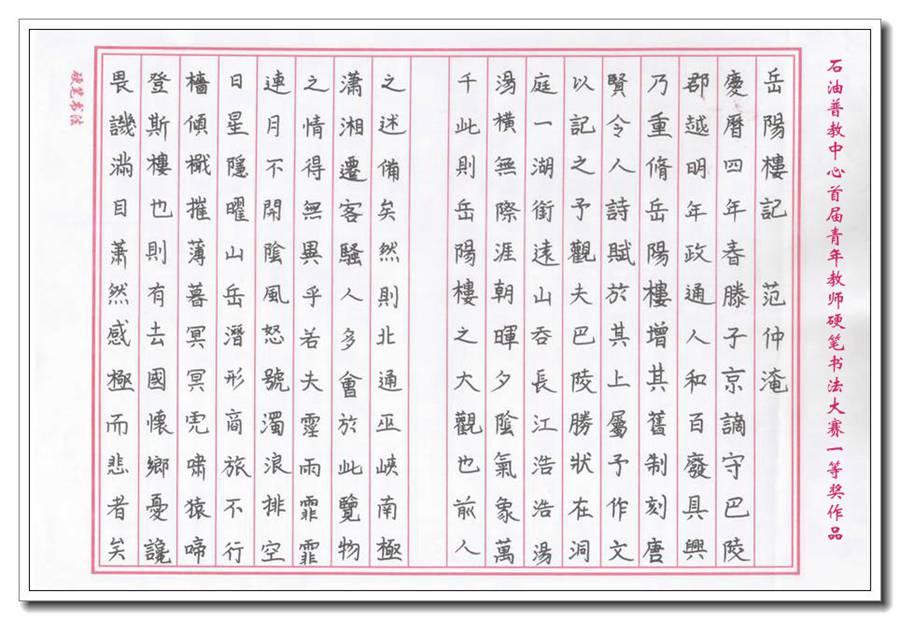 石油普教中心首届青年教师硬笔书法大赛一等奖作品
岳陽樓記 范仲淹
慶曆四年春滕子京謫守巴陵
郡越明年政通人和百廢具興
乃重脩岳陽樓增其舊制刻唐
賢令人詩賦於其上屬予作文
以記之予觀夫巴陵勝狀在洞
庭一湖銜遠山吞長江浩浩湯
湯橫無際涯朝暉夕陰氣象萬
千此則岳陽樓之大觀也前人
之述備矣然則北通巫峽南極
瀟湘遷客騷人多會於此覽物
之情得無異乎若夫霪雨霏霏
連月不開陰風怒號濁浪排空
日星隱曜山岳潛形商旅不行
檣傾檝摧薄暮冥冥虎嘯猿啼
登斯樓也則有去國懷鄉憂讒
畏譏滿目蕭然感極而悲者矣
硬笔书法